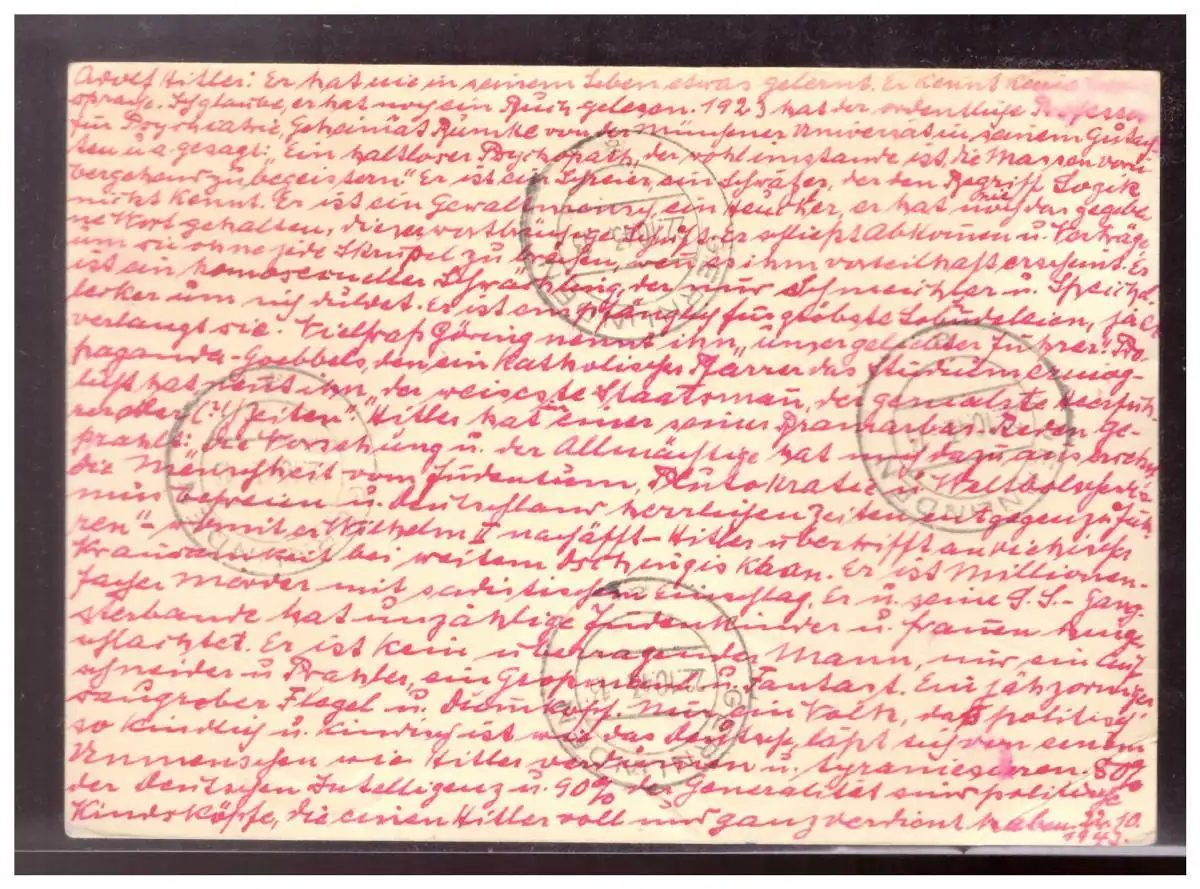 Adolf Hitler: Er hat nie in seinem Leben etwas gelernt. Er kennt keine
Sprache. Ich glaube, er hat noch kein Buch gelesen. 1923 hat der ordentliche Professor
für Psychiatrie, Geheimrat Bumke von der Münchener Universität in seinem Gutach-
ten u. a. gesagt: "Ein haltloser Psychopath, der wohl imstande ist, die Massen vorü-
bergehend zu begeistern." Er ist ein Schreier, ein Schwätzer, der den Begriff Logik
nicht kennt. Er ist ein Gewaltmensch, ein Heuchler, er hat noch nie das gegebe-
ne Wort gehalten, dieser wortbrüchige Er schließt Abkommen u. Verträge
um sie ohne jede Skrupel zu brechen, wenn es ihm vorteilhaft erscheint. Er
ist ein homosexueller Schwächling, der nur Schmeichler u. Speichel-
lecker um sich duldet. Er ist empfänglich für gröbste Lobhudeleien, ja er
verlangt sie. Vielfraß Göring nennt ihn "unser geliebter Führer". Pro-
paganda-Goebbels, dem ein katholischer Pfarrer das Studium ermög-
licht hat nennt ihn "der weiseste Staatsmann, der genialste Heerfüh-
rer aller (?!) Zeiten". Hitler hat in einer seiner Bramarbas-Reden ge-
prahlt: "Die Vorsehung u. der Allmächtige hat mich dazu ausersehen
die Menschheit vom Judentum, Plutokratie u. Weltbolschewis-
mus befreien u. Deutschland herrlichen Zeiten entgegenzufüh-
ren" - womit er Wilhelm II nachäfft - Hitler übertrifft an viehischer
Grausamkeit bei weitem Dschinges Khan. Er ist Millionen-
facher Mörder mit sadistischem Einschlag. Er u. seine S.S.-Gang-
sterbande hat unzählige Judenkinder u. Frauen hinge-
schlachtet. Er ist kein überragender Mann, nur ein Auf-
schneider u. Prahler, ein u. Fantast. Ein jähzorniger
saugrober Flegel u. Dummkopf. Nur ein Volk, das politisch
so kindlich u. kindisch ist wie das deutsche, läßt sich von einem
Unmenschen wie Hitler verführen u. tyranisieren. 80%
der deutschen Intelligenz u. 90% der Generalität sind politische
Kindsköpfe, die einen Hitler voll und ganz verdient haben. 22.10.
1943.
GERNLINDEN
GERNLINDEN
GERNLINDEN
GERNLINDEN